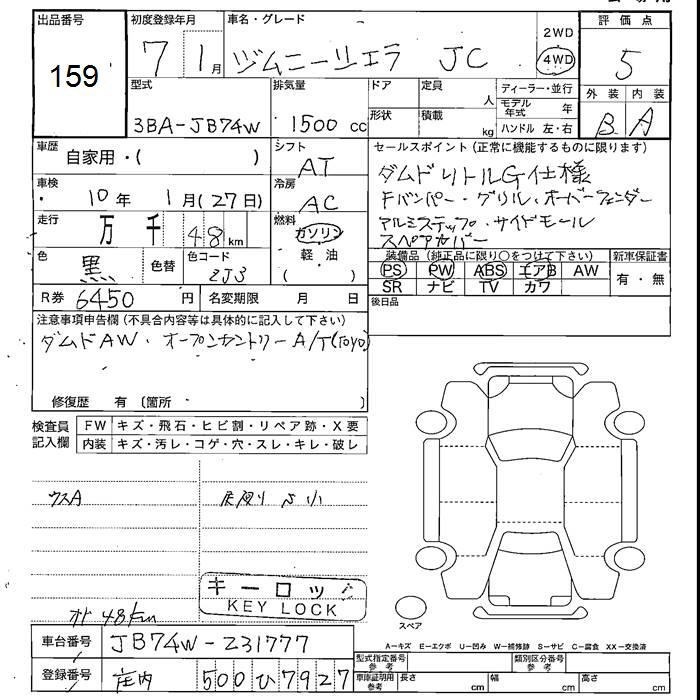 出品番号 初度登録年月 車名・グレード 2WD 評価点
159 7 1月 ジムニーシエラ JC 4WD 5
型式 排気量 ドア 定員 人 ディーラー・並行 外装 内装
3BA-JB74W 1500 cc 形状 積載 kg モデル年式 年 B A
ハンドル 左・右
車歴 自家用・( ) シフト AT セールスポイント(正常に機能するものに限ります)
車検 10年 1月(27日) 冷房 AC ダムドリトルG仕様
Fバンパー・グリル・オーバーフェンダー
走行 万 千 48km 燃料 ガソリン アルミステップ・サイドモール
軽・油 スペアカバー
( )
色 黒 色替 色コード ZJ3 装備品(純正品に限り○をつけて下さい) 新車保証書
PS PW ABS エアB AW 有・無
SR ナビ TV カワ
R券 6450円 名変期限 月 日 後日品
注意事項申告欄(不具合内容等は具体的に記入して下さい)
ダムドAW・オープンカントリーA/T(TOYO)
修復歴 有(箇所 )
検査員記入欄 FW キズ・飛石・ヒビ割・リペア跡・X要
内装 キズ・汚レ・コゲ・穴・スレ・キレ・破レ
ウスA
キーロック
KEY LOCK
48km
スペア
A-キズ E-エクボ U-凹み W-補修跡 S-サビ C-腐食 XX-交換済
車台番号 JB74W-231777
登録番号 庄内 500 ひ 7927
型式指定番号 参考 類別区分番号 参考
車庫証明用 参考 長さ cm 幅 cm 高さ cm